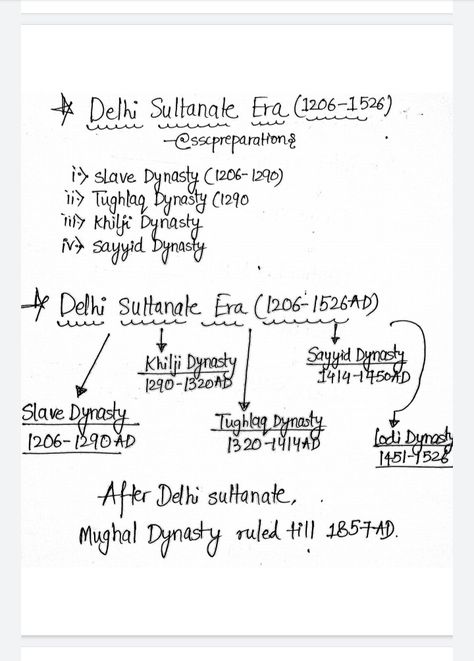 Delhi Sultanate Era (1206-1526)
-@sscpreparation8
i) Slave Dynasty (1206-1290)
ii) Tughlaq Dynasty (1290
iii) Khilji Dynasty
iv) Sayyid Dynasty
Delhi Sultanate Era (1206-1526AD)
Khilji Dynasty
1290-1320AD
Sayyid Dynasty
1414-1450AD
Slave Dynasty
1206-1290AD
Tughlaq Dynasty
1320-1414AD
Lodi Dynasty
1451-1526
After Delhi sultanate,
Mughal Dynasty ruled till 1857AD.